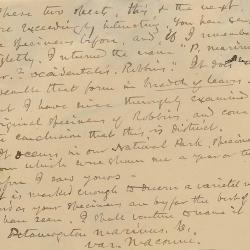 These two sheets, this & the next
are exceedingly interesting. You have sent
me specimens before, and if I remember
rightly, I returned the name "P. marinus
var. ? occidentalis, Robbins." It does
resemble that form in breadth of leaves.
but I have since thoroughly examined
original specimens of Robbins, and come
conclusion that this is distinct.
It occurs in our National Park, specimens
from which were shown me a year or two
before I saw yours.
It is marked enough to deem a varietal
and as your specimens are by far the best
have seen. I shall venture to name it
Potamogeton marinus, L.
var. Macounii.